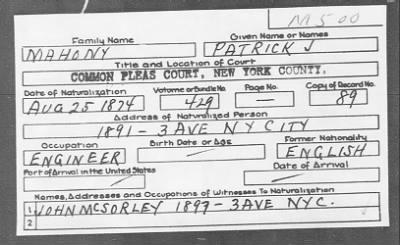 M 500
Family Name Given Name or Names
MAHONY PATRICK J
Title and Location of Court
COMMON PLEAS COURT, NEW YORK COUNTY.
Date of Naturalization Volume or Bundle No. Page No. Copy of Record No.
AUG 25 1874 429 — 89
Address of Naturalized Person
1891 - 3 AVE N Y CITY
Occupation Birth Date or Age Former Nationality
ENGINEER — ENGLISH
Port of Arrival in the United States Date of Arrival
Names, Addresses and Occupations of Witnesses To Naturalization
1 JOHN MCSORLEY 1897 - 3 AVE NYC.
2